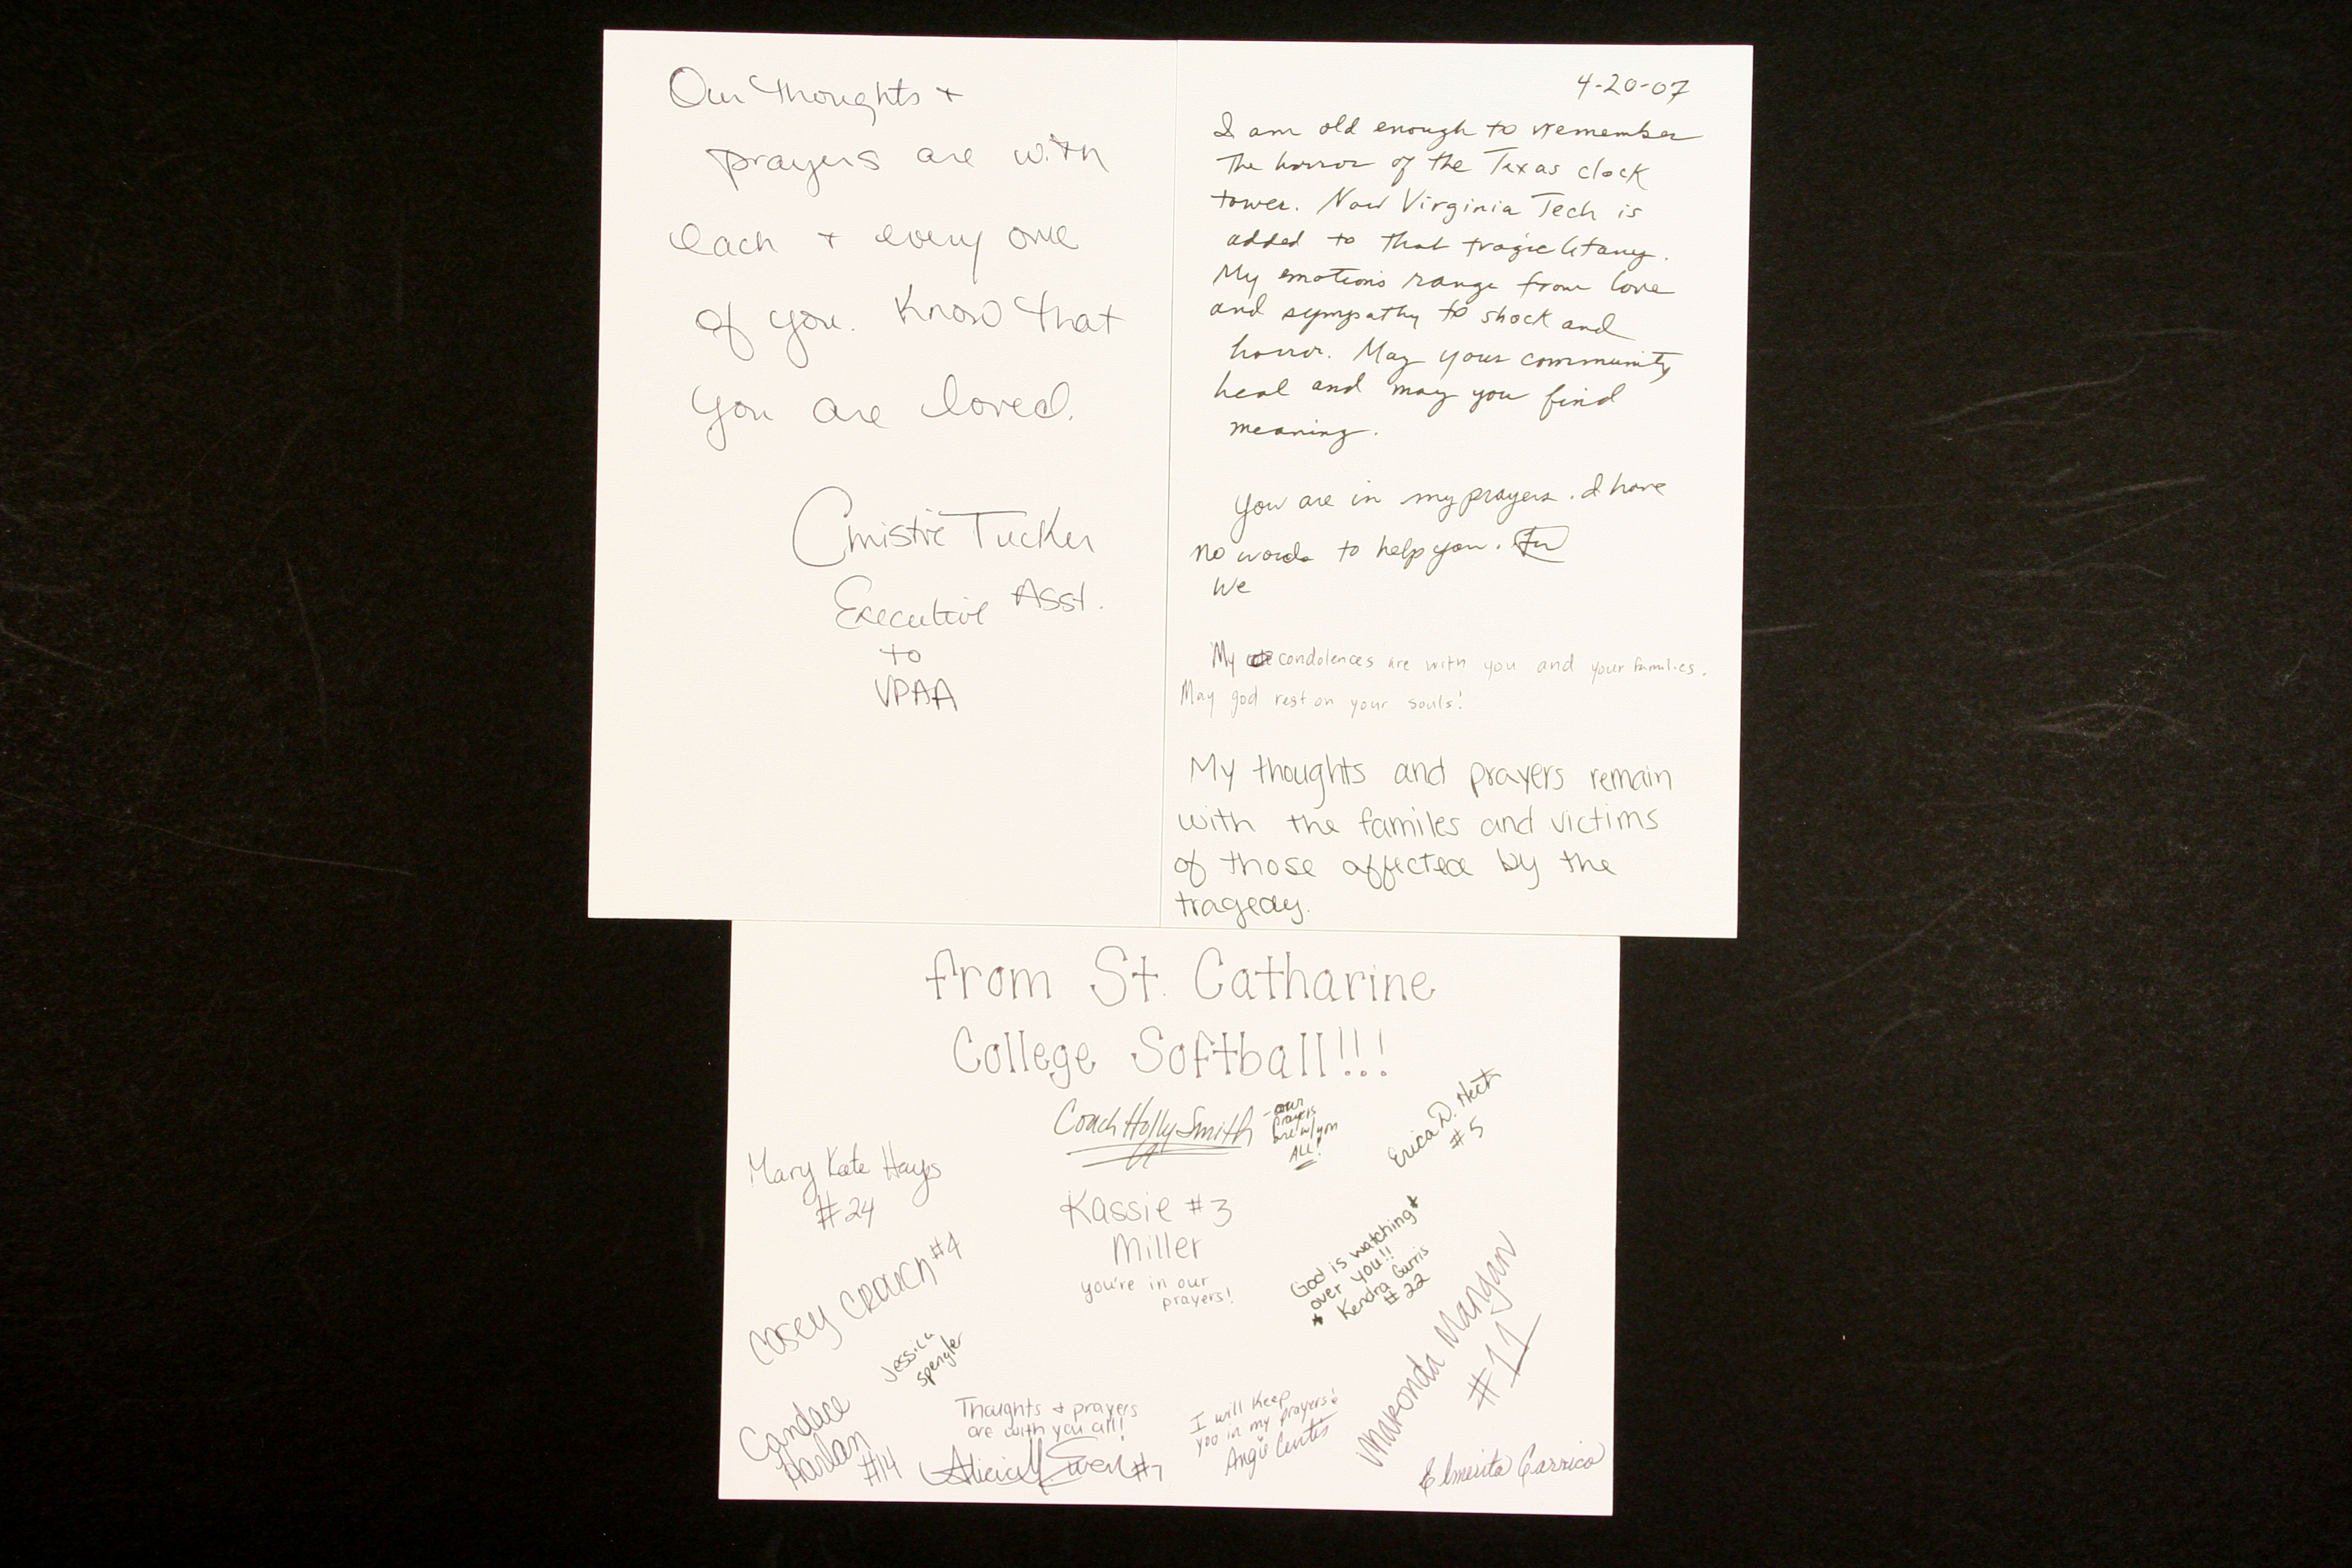 Our thoughts +
prayers are with
each + every one
of you. Know that
you are loved.
Christie Tucker
Executive Asst.
to
VPAA
4-20-07
I am old enough to remember
the horror of the Texas clock
tower. Now Virginia Tech is
added to that tragic litany.
My emotions range from love
and sympathy to shock and
horror. May your community
heal and may you find
meaning.
You are in my prayers. I have
no words to help you.
We
My condolences are with you and your families.
May god rest on your souls!
My thoughts and prayers remain
with the familes and victims
of those affected by the
tragedy.
from St. Catharine
College Softball!!!
Coach Holly Smith
- our
prayers
are w/ you
ALL!
Erica D. Hect
#5
Mary Kate Hays
#24
Kassie #3
Miller
you're in our
prayers!
God is watching
over you!!
Kendra Gurris
#22
Casey Crouch #4
Jessica
Spengler
Maronda Mangan
#11
Candace
Harlan
#14
Thoughts + prayers
are with you all!
Alicia M. Ewen #7
I will keep
you in my prayers!
Angie Curtis
Elmerita Carrico